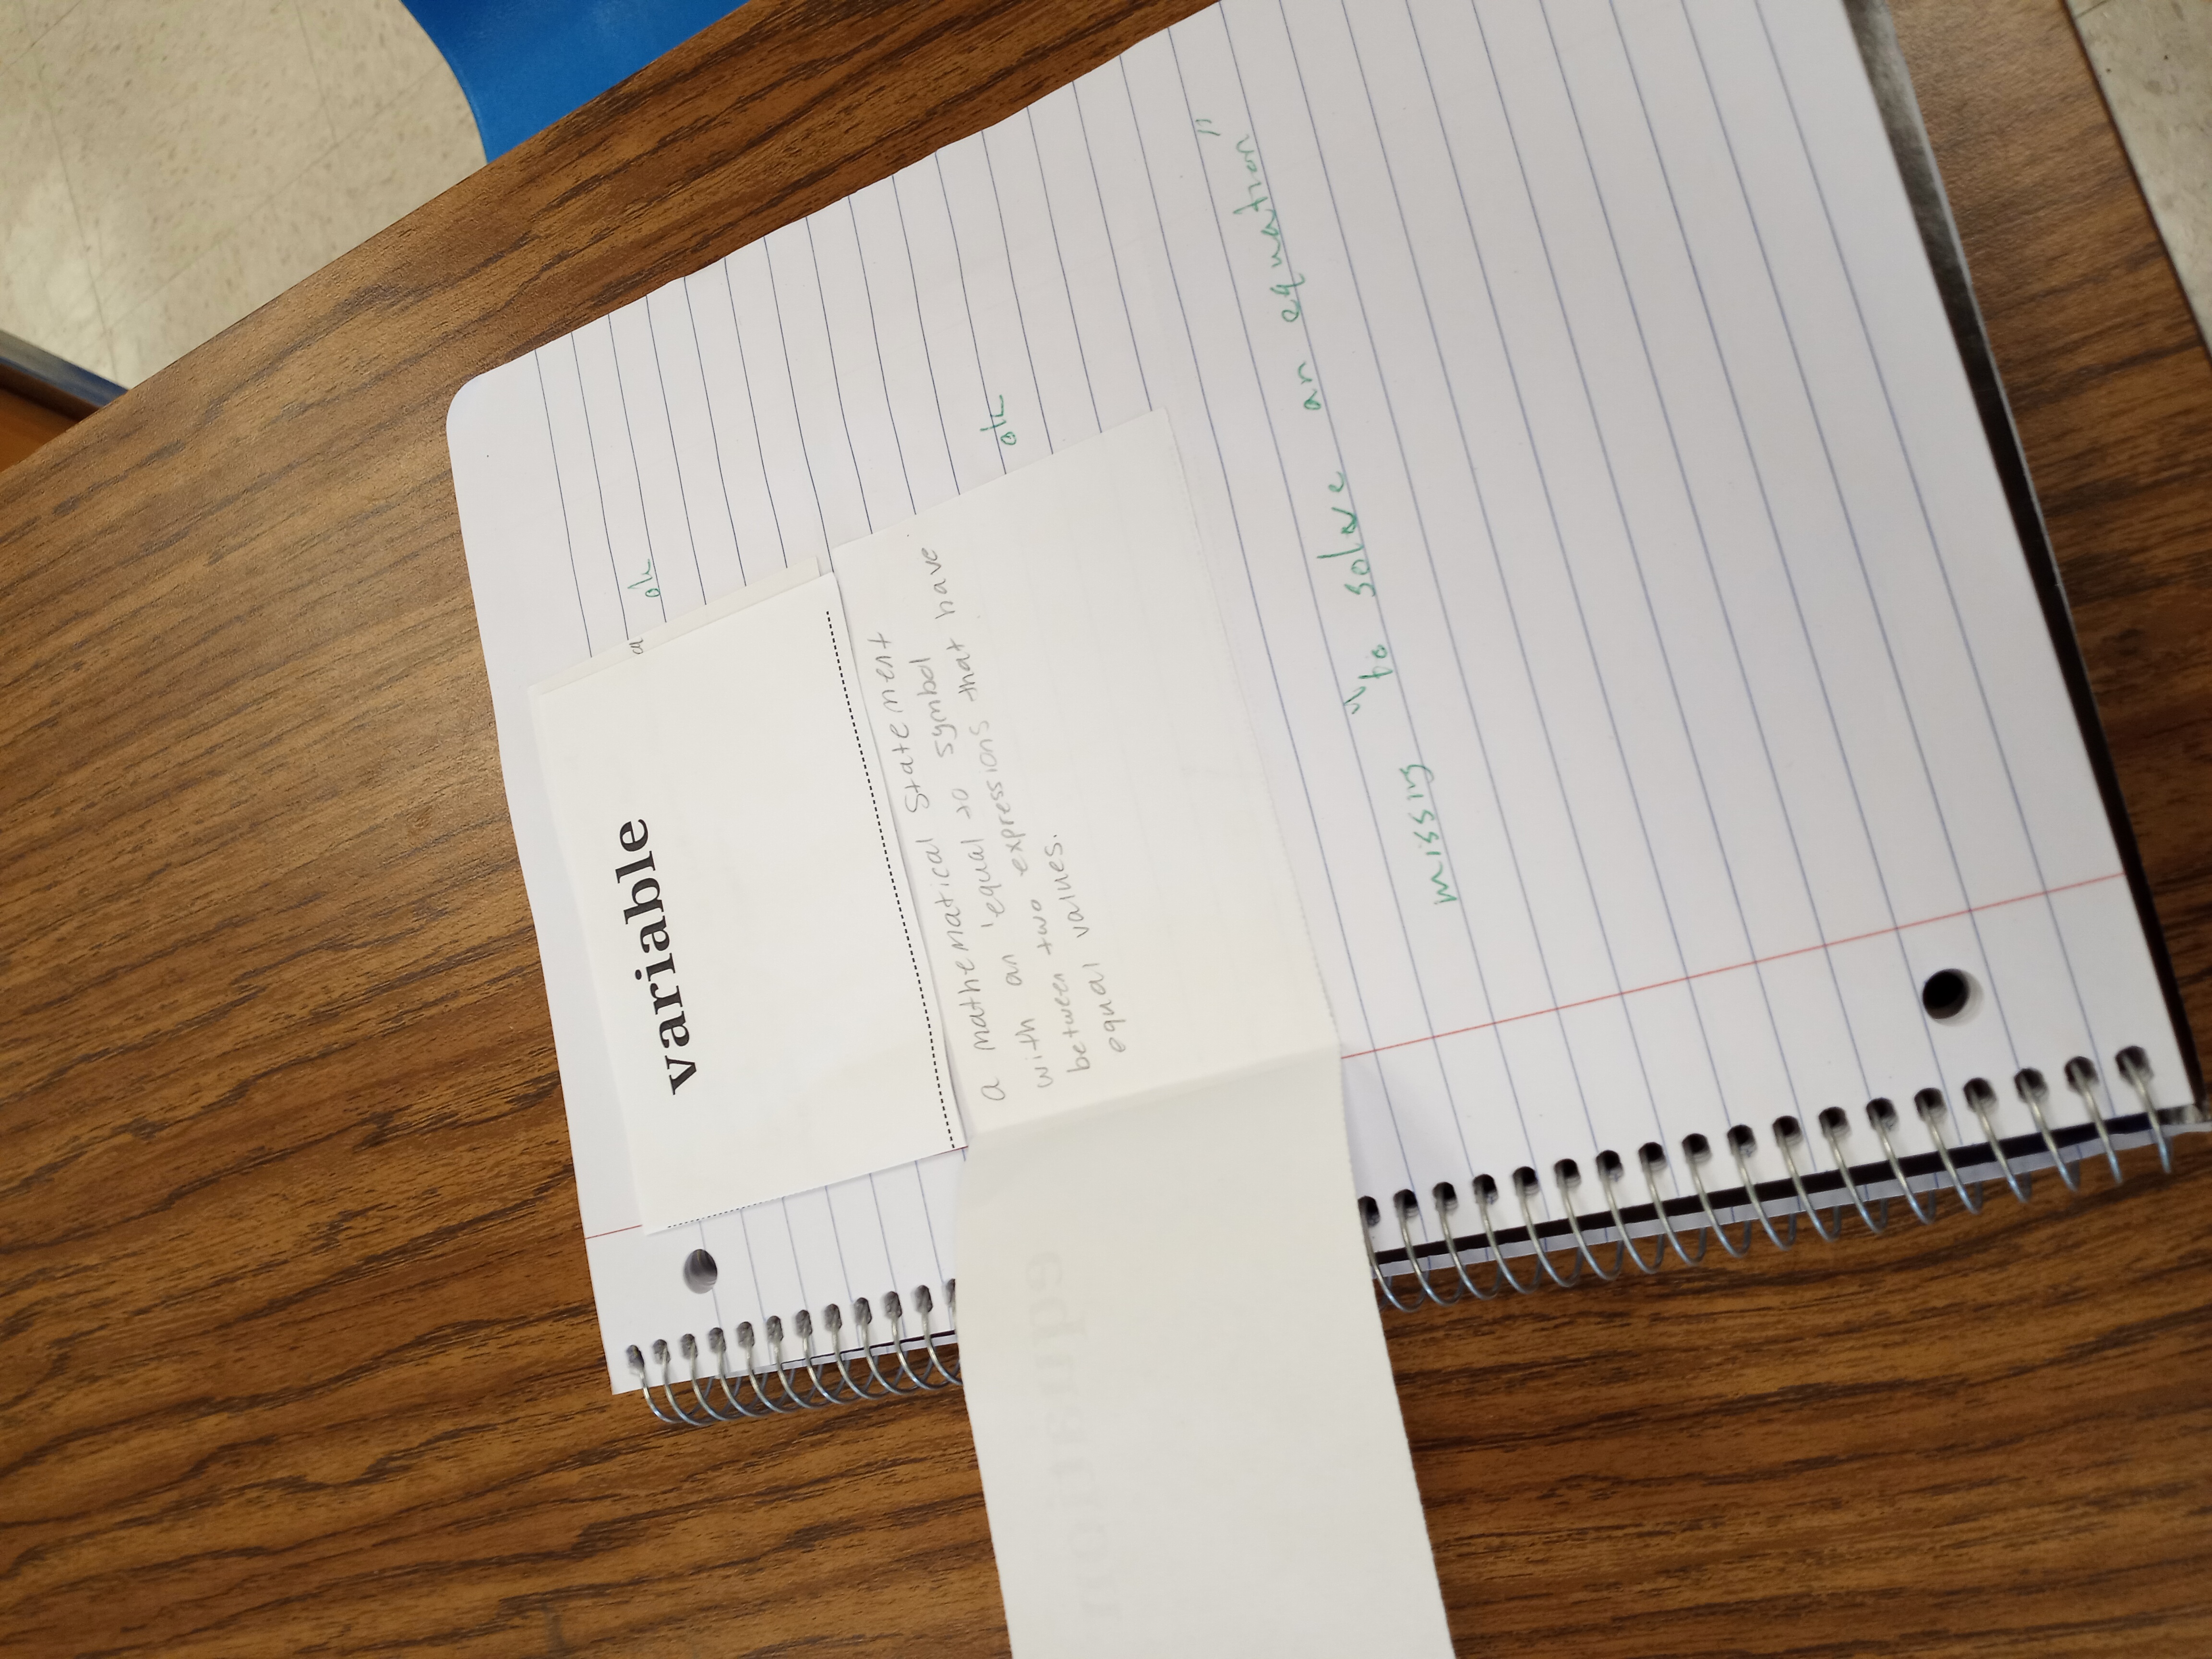 variable
a ok
a mathematical statement
with an 'equal to symbol
between two expressions that have
equal values.
equation
ok
missing "to solve an equation"